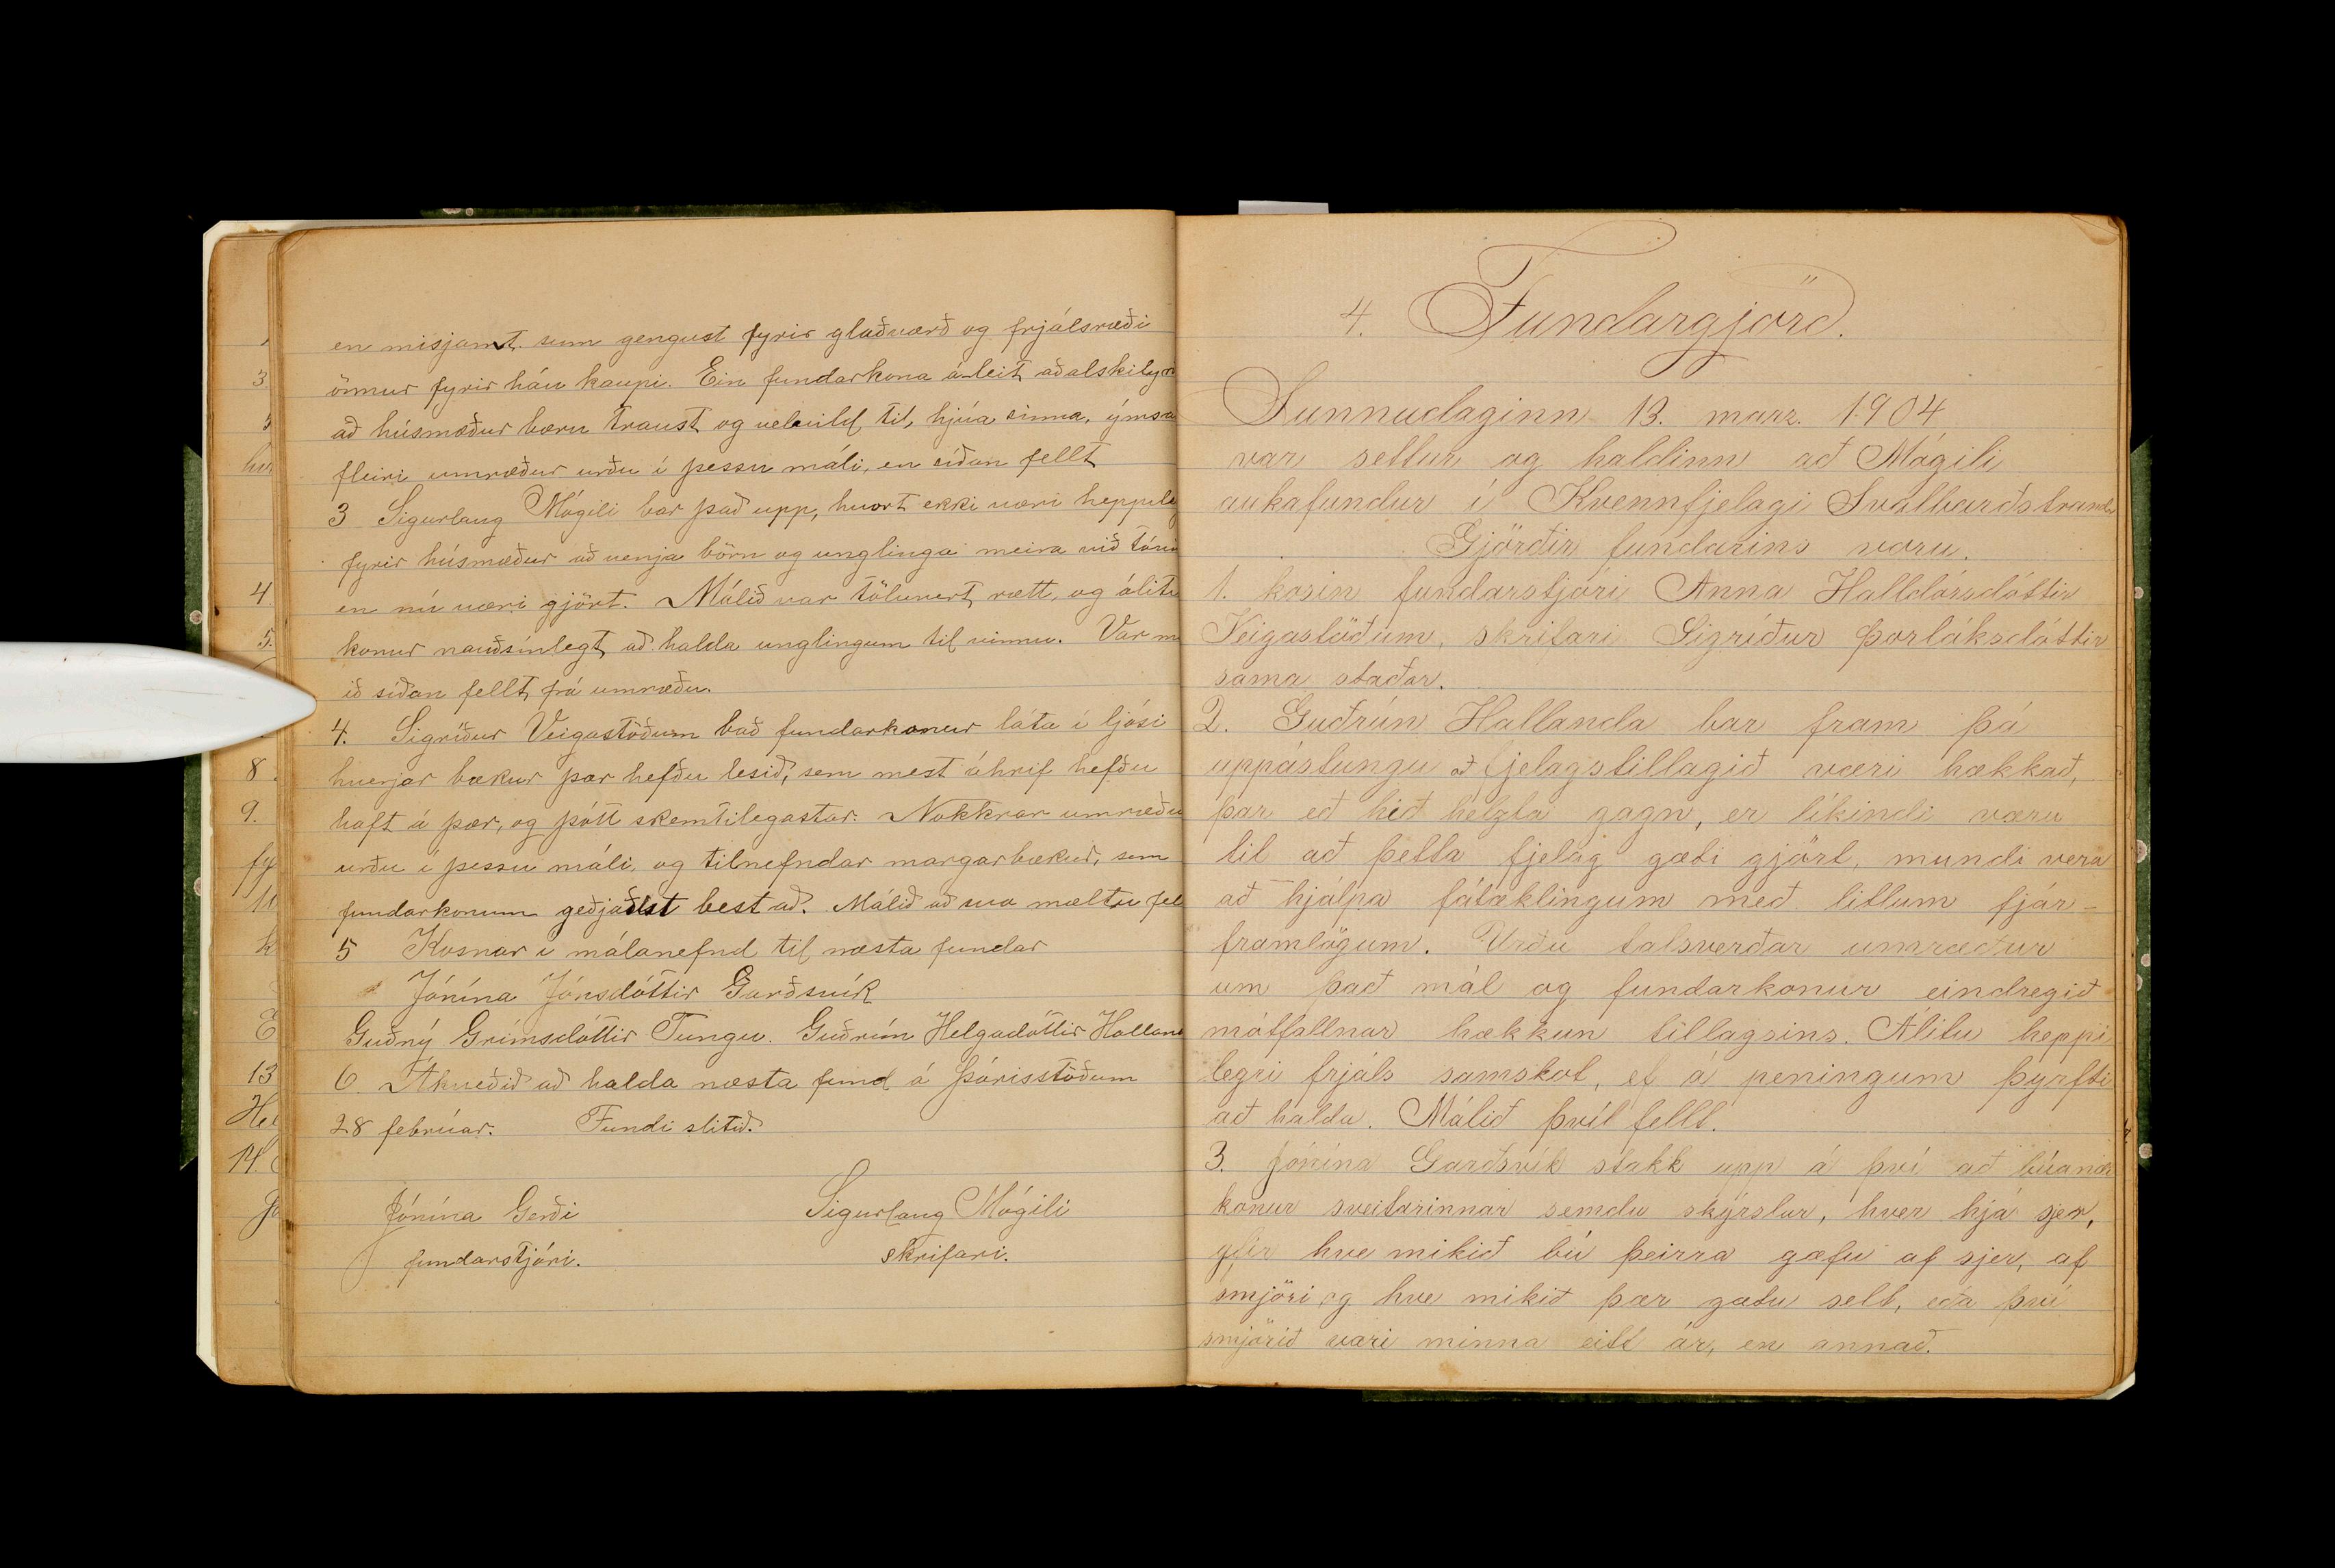 en misjamt. sum gengust fyrir glaðværð og frjálsræði
önnur fyrir háu kaupi. Ein fundarkona áleit aðalskilyrð
að húsmæður bæru traust og velvild til, hjúa sinna. ýmsa
fleiri umræður urðu í þessu máli, en síðan fellt
3 Sigurlaug Mógili bar það upp, hvort ekki væri heppileg
fyrir húsmæður að venja börn og unglinga meira við tóvi
en nú væri gjört. Málið var tölvert rætt, og álitu
konur nauðsinlegt að halda unglingum til vinnu. Var m
ið síðan fellt frá umræðu.
4. Sigríður Veigastöðum bað fundarkonur láta í ljósi
hverjar bækur þær hefðu lesið, sem mest áhrif hefðu
haft á þær, og þótt skemtilegastar. Nokkrar umræðu
urðu í þessu máli, og tilnefndar margar bækur, sem
fundarkonum geðjaðist best að. Málið að svo mæltu fel
5 Kosnar í málanefnd til næsta fundar
Jónína Jónsdóttir Garðsvík
Guðný Grímsdóttir Tungu. Guðrún Helgadóttir Halland
6. Ákveðið að halda næsta fund á Þórisstöðum
28 febrúar. Fundi slitið.
Jónína Gerði Sigurlaug Mógili
fundarstjóri. skrifari.
4. Fundargjörð.
Sunnudaginn 13. marz. 1904
var settur og haldinn að Mógili
aukafundur í Kvennfjelagi Svalbarðstrand
Gjörðir fundarins voru.
1. kosin fundarstjóri Anna Halldórsdóttir
Veigastöðum, skrifari Sigríður Þorláksdóttir
sama staðar.
2. Guðrún Hallanda bar fram þá
uppástungu að fjelagstillagið væri hækkað,
þar eð hið helzta gagn, er líkindi væru
til að þetta fjelag gæti gjört, mundi vera
að hjálpa fátæklingum með litlum fjár-
framlögum. Urðu talsverðar umræður
um það mál og fundarkonur eindregið
mótfallnar hækkun tillagsins. Álitu heppi
legri frjáls samskot, ef á peningum þyrfti
að halda. Málið því fellt.
3. Jónína Garðsvík stakk upp á því að búand
konur sveitarinnar semdu skýrslur, hver hjá sjer,
yfir hve mikið bú þeirra gæfu af sjer, af
smjöri og hve mikið þær gætu selt, eða því
smjörið væri minna eitt ár, en annað.
3
5
4
5.
8
9.
13
14